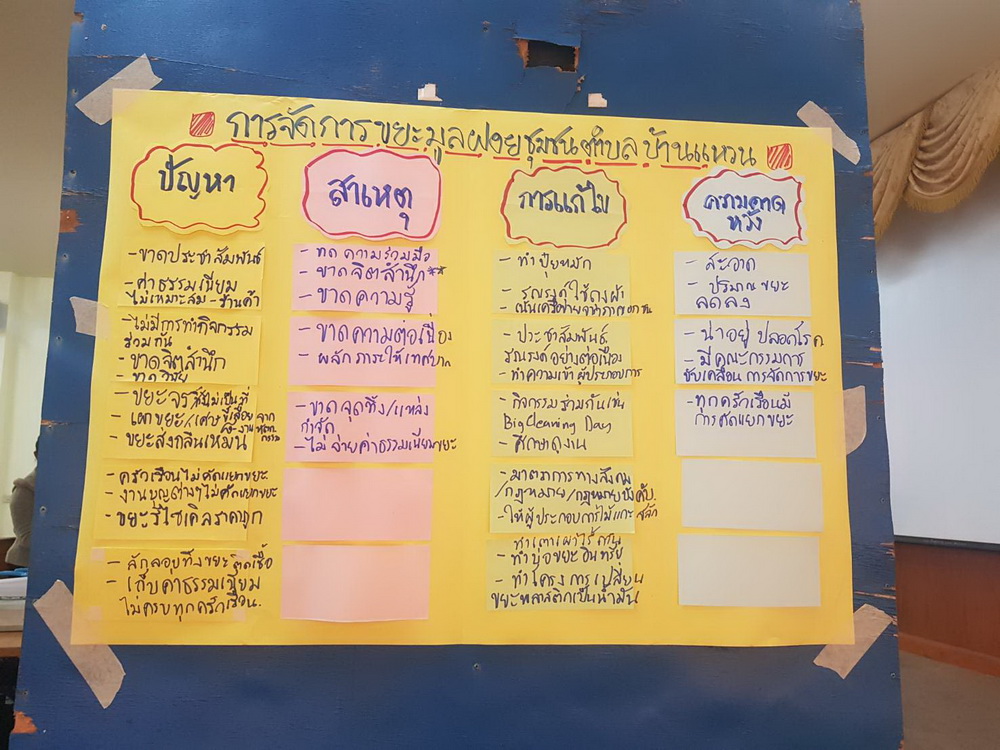 การจัดการขยะมูลฝอยชุมชนตำบลบ้านแหวน
ปัญหา
- ขาดประชาสัมพันธ์
- ค่าธรรมเนียม
ไม่เหมาะสม - ร้านค้า
- ไม่มีการทำกิจกรรม
ร่วมกัน
- ขาดจิตสำนึก
- ขาดวินัย
- ขยะจร ทิ้งไม่เป็นที่
- เผาขยะ/เศษ จาก
- ขยะส่งกลิ่นเหม็น
- ครัวเรือนไม่คัดแยกขยะ
- งานบุญต่างๆไม่คัดแยกขยะ
- ขยะรีไซเคิลราคาถูก
- ลักลอบทิ้งขยะติดเชื้อ
- เก็บค่าธรรมเนียม
ไม่ครบทุกครัวเรือน.
สาเหตุ
- ขาดความร่วมมือ
- ขาดจิตสำนึก**
- ขาดความรู้
- ขาดความต่อเนื่อง
- ผลักภาระให้เทศบาล
- ขาดจุดทิ้ง/แหล่ง
กำจัด
- ไม่จ่ายค่าธรรมเนียมขยะ
การแก้ไข
- ทำปุ๋ยหมัก
- รณรงค์ใช้ถุงผ้า
- ประชาสัมพันธ์
รณรงค์อย่างต่อเนื่อง
- ทำความเข้าผู้ประกอบการ
- กิจกรรมร่วมกันเช่น
Big Cleaning Day
- ศึกษาดูงาน
- มาตรการทางสังคม
/กฎหมาย/กฎหมายบังคับ.
- ให้ผู้ประกอบการไม้แกะสลัก
ทำเตาเผาไร้ควัน
- ทำบ่อขยะอินทรีย์
- ทำโครงการเปลี่ยน
ขยะพลาสติกเป็นน้ำมัน
ความคาด
หวัง
- สะอาด
- ปริมาณขยะ
ลดลง
- น่าอยู่ ปลอดโรค
- มีคณะกรรมการ
ขับเคลื่อน การจัดการขยะ
- ทุกครัวเรือนมี
การคัดแยกขยะ